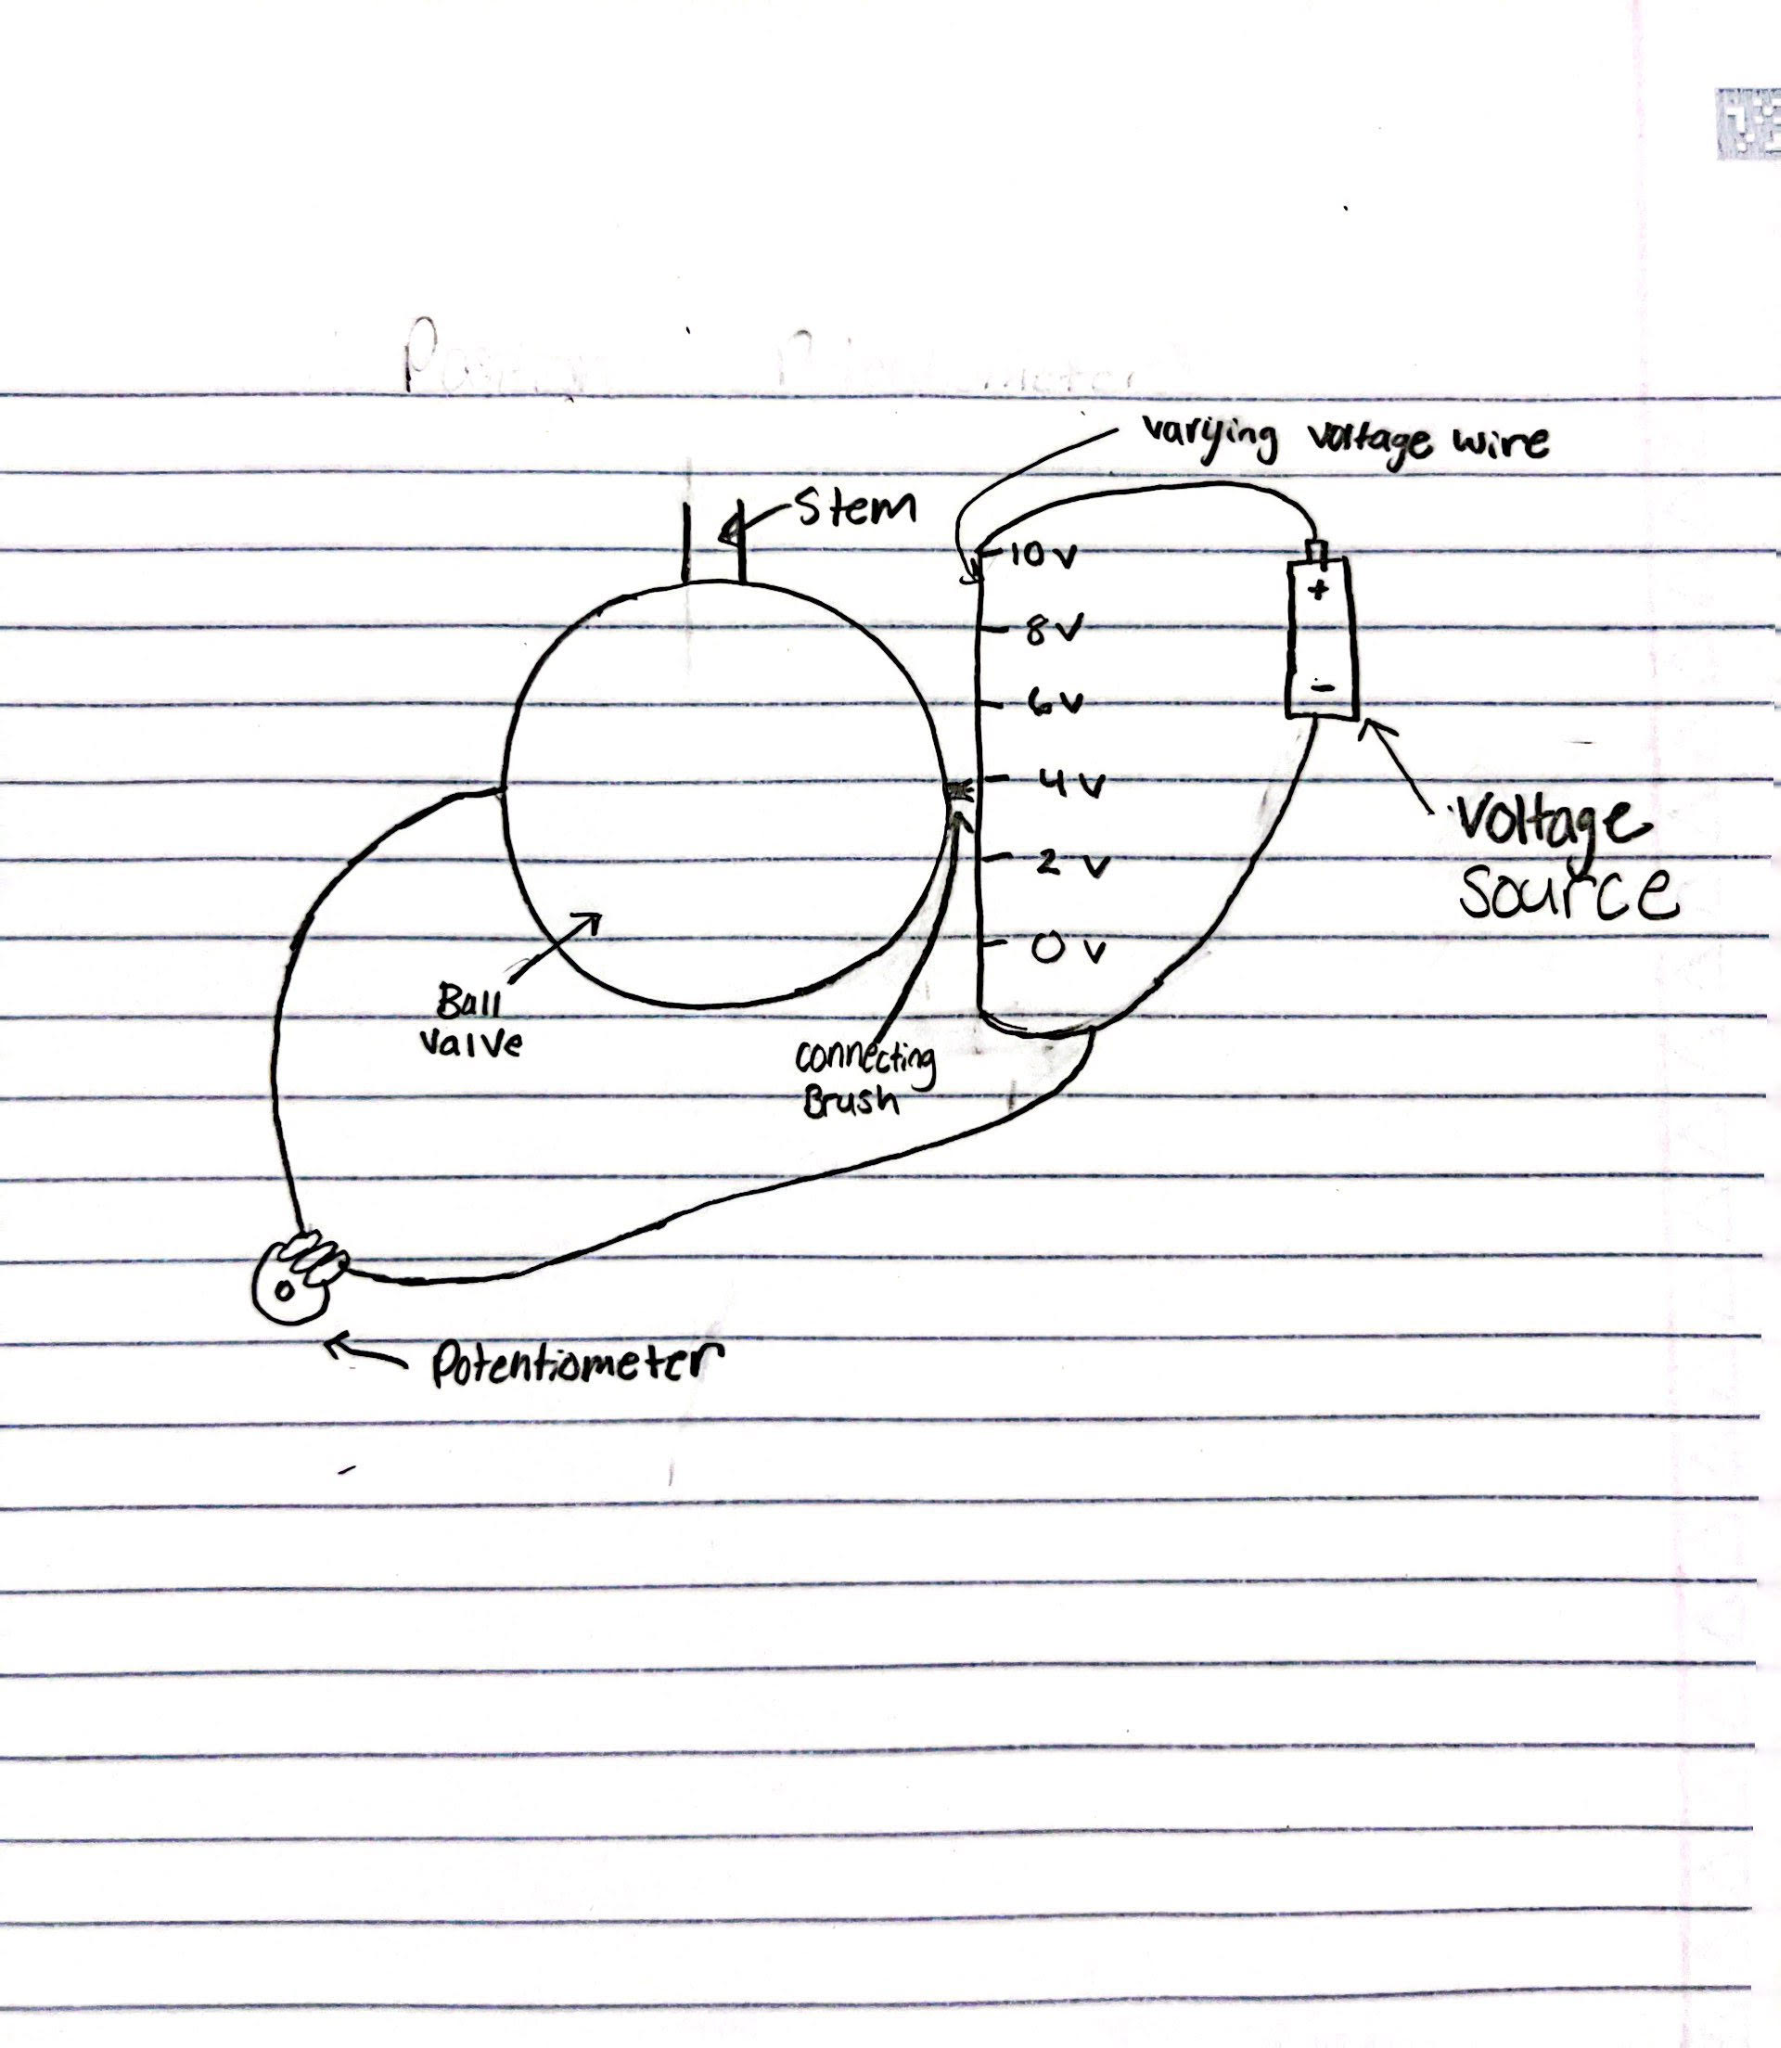 varying voltage wire
Stem
10 V
8 V
6 V
4 V
2 V
0 V
+
-
Voltage
Source
Ball
Valve
connecting
Brush
Potentiometer